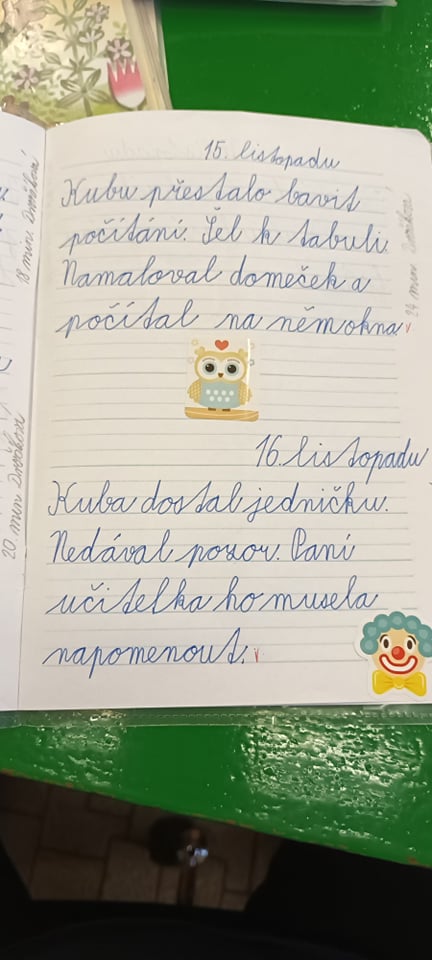 15. listopadu
Kubu přestalo bavit
počítání. Šel k tabuli.
Namaloval domeček a
počítal na něm okna.
16. listopadu
Kuba dostal jedničku.
Nedával pozor. Paní
učitelka ho musela
napomenout.
18 min. Dvořáková
20 min Dvořáková
24 min Dvořáková